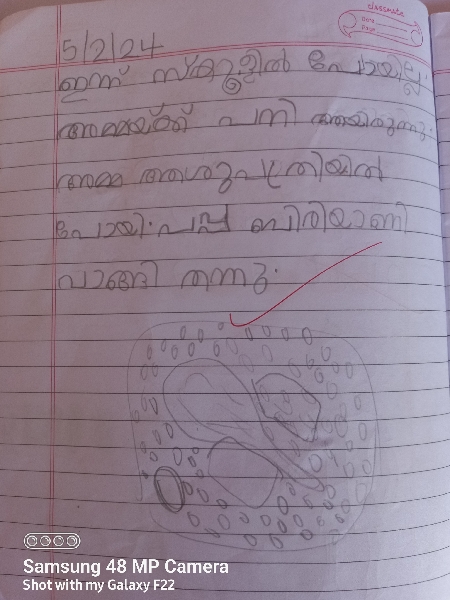 classmate
Date
Page
5/2/24
ഇന്ന് സ്കൂളിൽ പോയില്ല
അമ്മയ്ക്ക് പനി ആയിരുന്നു.
അമ്മ ആശുപത്രിയിൽ
പോയി. പപ്പ ബിരിയാണി
വാങ്ങി തന്നു.
Samsung 48 MP Camera
Shot with my Galaxy F22